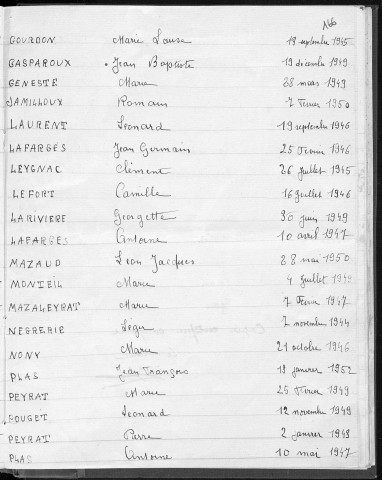 166
GOURDON Marie Louise 19 septembre 1945
GASPAROUX Jean Baptiste 19 décembre 1949
GENESTE Marie 28 mars 1949
JAMILLOUX Romain 7 Février 1950
LAURENT Leonard 19 septembre 1946
LAFARGES Jean Germain 25 Février 1946
LEYGNAC Clément 26 Juillet 1945
LEFORT Camille 16 Juillet 1946
LARIVIERE Georgette 30 juin 1949
LAFARGES Antoine 10 avril 1947
MAZAUD Leon Jacques 28 mai 1950
MONTEIL Marie 4 Juillet 1949
MAZALEYRAT Marie 7 Février 1947
NEGRERIE Léger 7 novembre 1944
NONY Marie 21 octobre 1946
PLAS Jean François 18 janvier 1952
PEYRAT Marie 25 Février 1949
POUGET Leonard 12 novembre 1949
PEYRAT Pierre 2 janvier 1948
PLAS Antoine 10 mai 1947